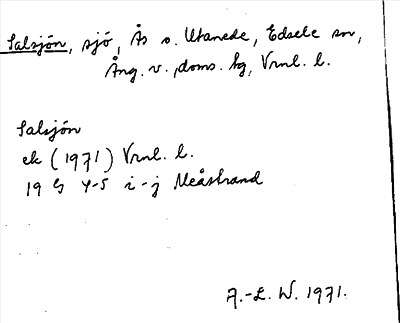 Salsjön, sjö, Ås o. Utanede, Edsele sn,
Ång. v. doms. hg, Vrnl. l.
Salsjön
ek (1971) Vrnl. l.
19 G 4-5 i-j Meåstrand
A.-L. W. 1971.